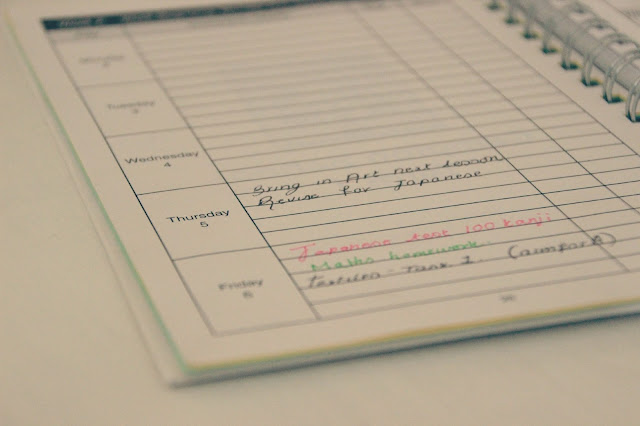 Monday
2
Tuesday
3
Wednesday
4
Bring in Art next lesson
Revise for Japanese
Thursday
5
Japanese test 100 kanji
Maths homework.
Textiles - Task 1.
Friday
6